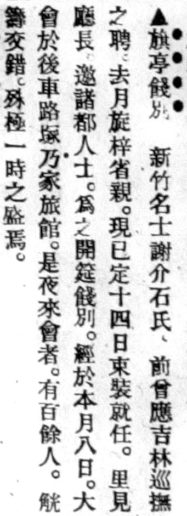 ▲旗亭餞別　新竹名士謝介石氏、前曾應吉林巡撫
之聘。去月旋梓省親。現已定十四日束裝就任。里見
廳長、邀諸都人士。爲之開筵餞別。經於本月八日。大
會於後車路塚乃家旅館。是夜來會者。有百餘人。觥
籌交錯。殊極一時之盛焉。